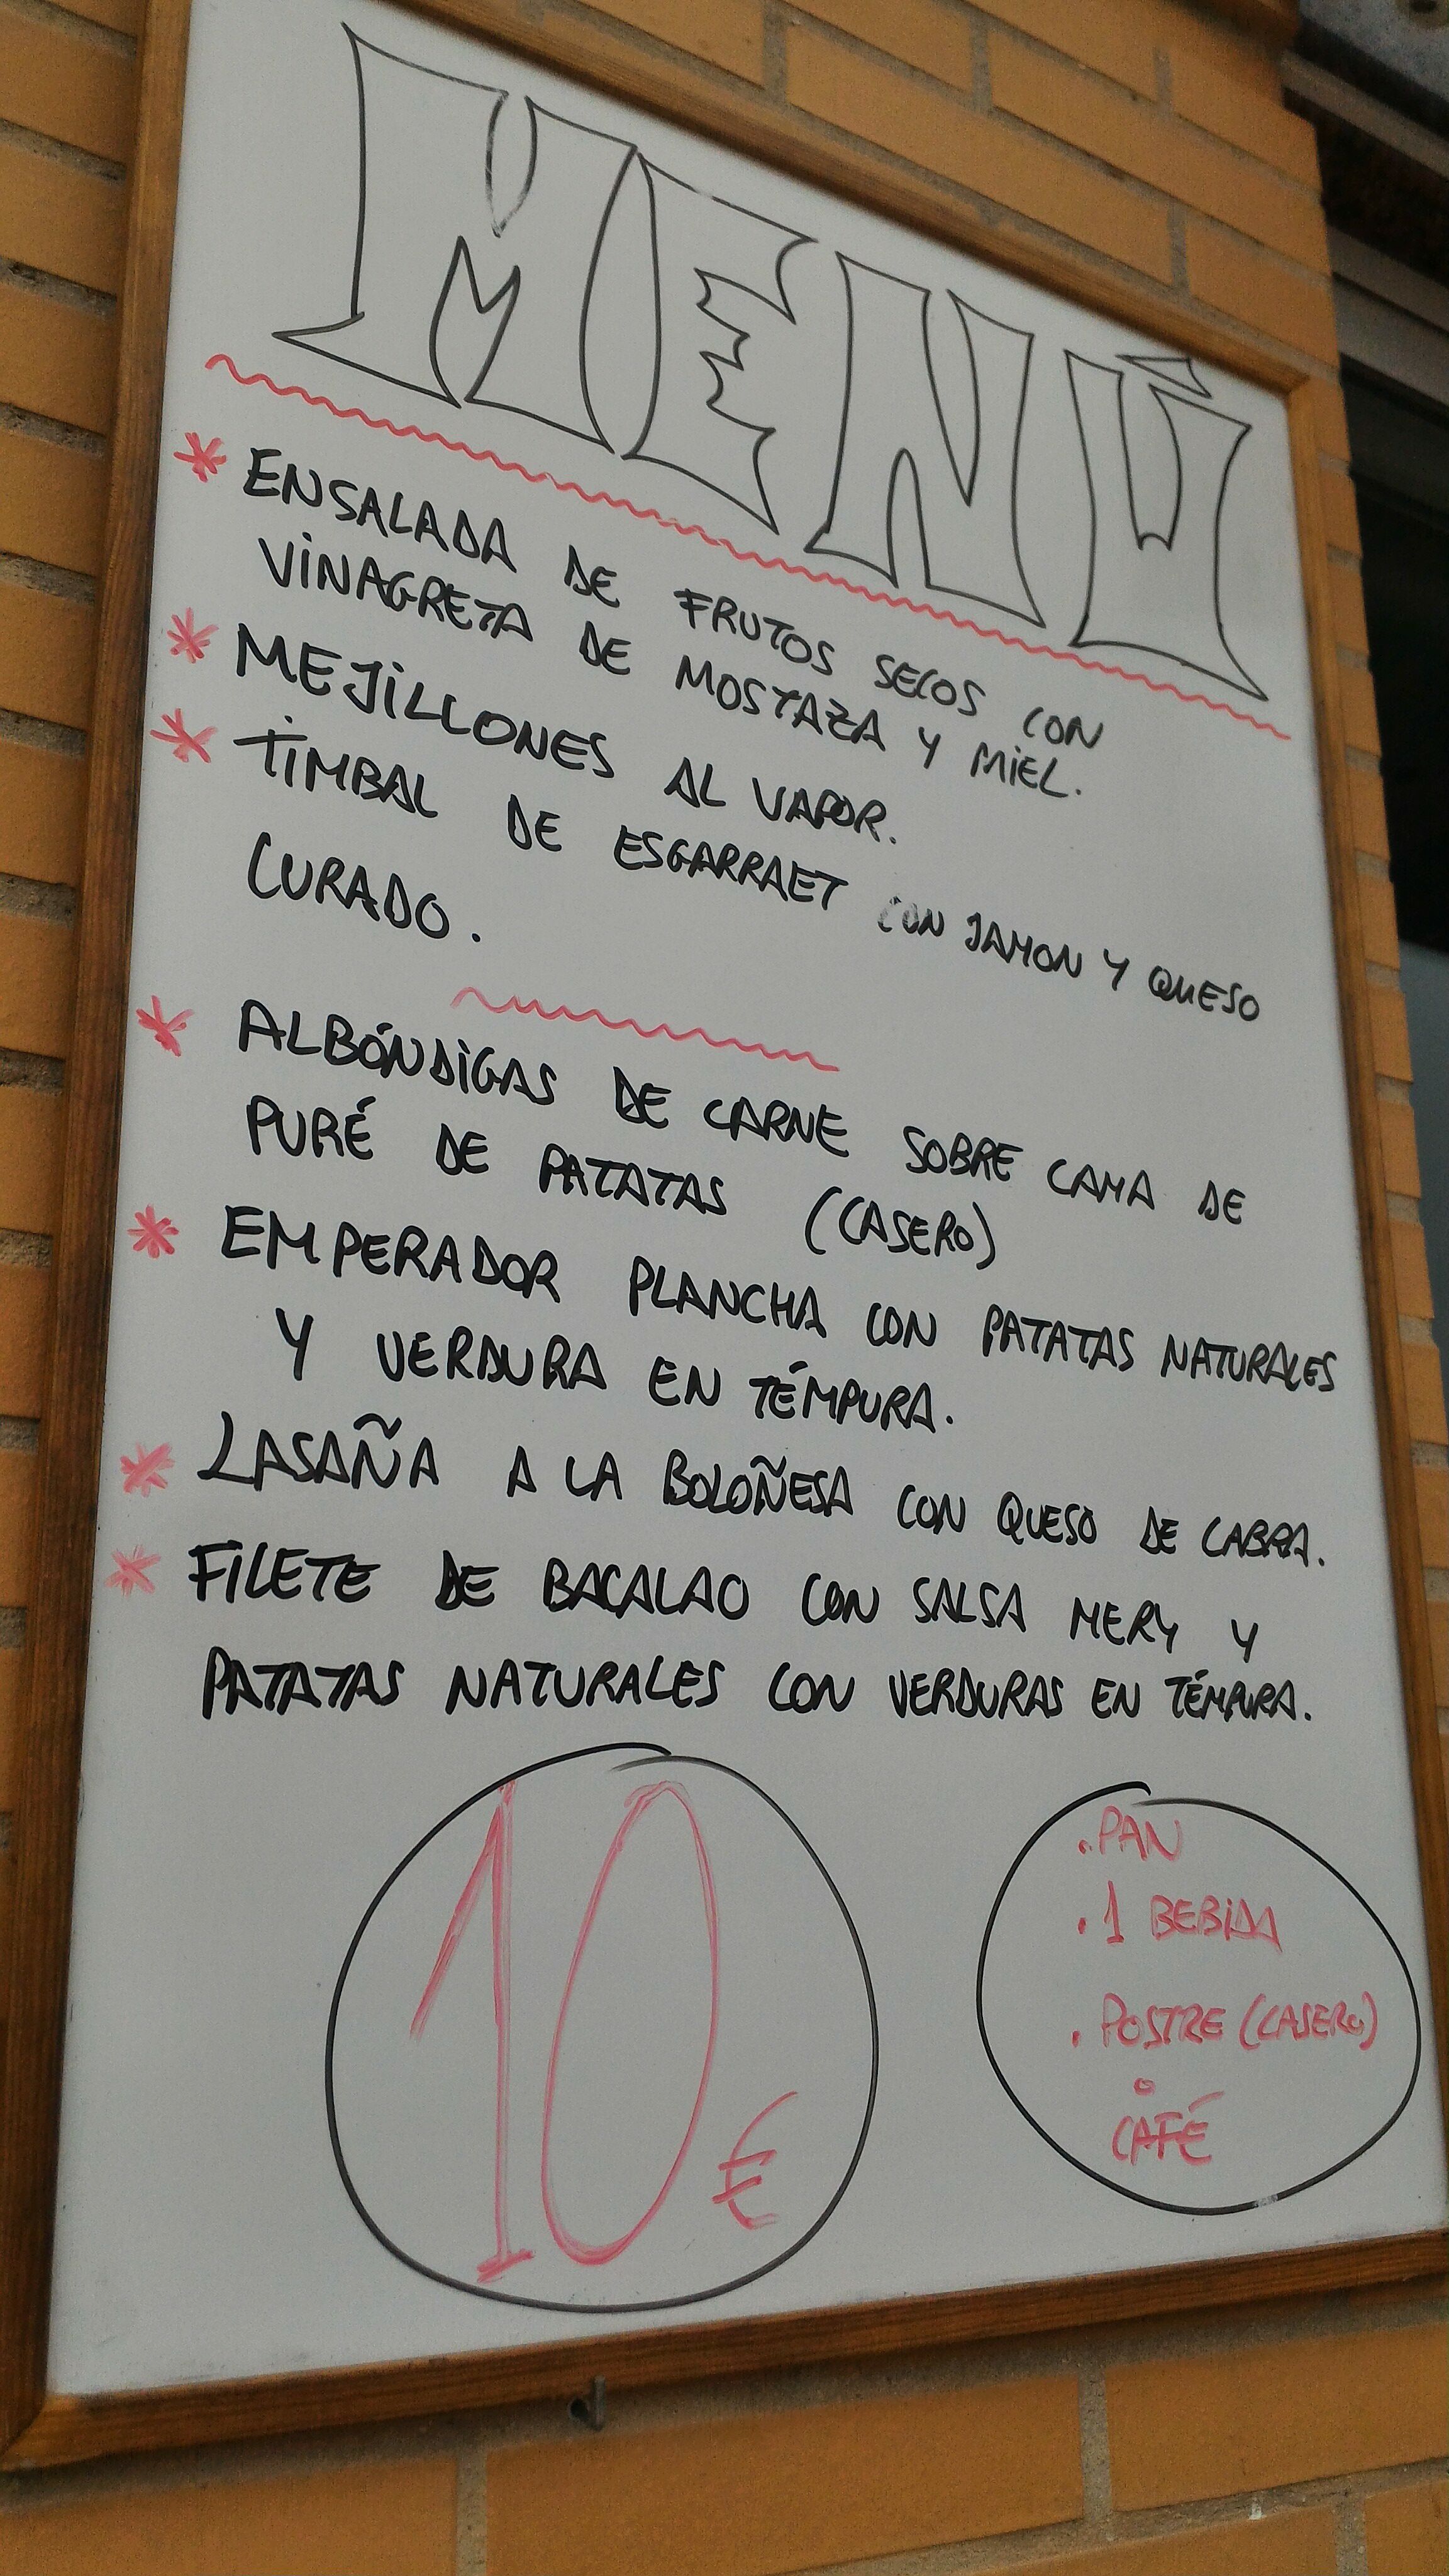 MENÚ
* ENSALADA DE FRUTOS SECOS CON
VINAGRETA DE MOSTAZA Y MIEL.
* MEJILLONES AL VAPOR.
* TIMBAL DE ESGARRAET CON JAMON Y QUESO
CURADO.
* ALBÓNDIGAS DE CARNE SOBRE CAMA DE
PURÉ DE PATATAS (CASERO)
* EMPERADOR PLANCHA CON PATATAS NATURALES
Y VERDURA EN TÉMPURA.
* LASAÑA A LA BOLOÑESA CON QUESO DE CABRA.
* FILETE DE BACALAO CON SALSA MERY Y
PATATAS NATURALES CON VERDURAS EN TÉMPURA.
10 €
. PAN
. 1 BEBIDA
. POSTRE (CASERO)
o
CAFÉ